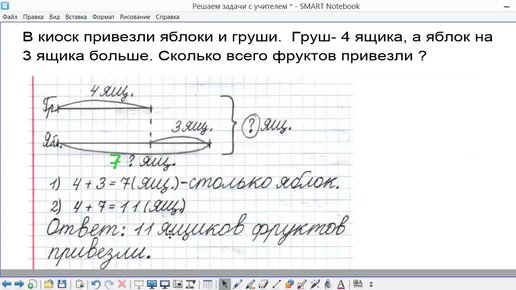 Решаем задачи с учителем * - SMART Notebook
Файл Правка Вид Вставка Формат Инструменты Рисование Справка
В киоск привезли яблоки и груши. Груш- 4 ящика, а яблок на
3 ящика больше. Сколько всего фруктов привезли ?
4 ящ.
Гр.
3 ящ.
? ящ.
Ябл.
7 ? ящ.
1) 4 + 3 = 7 (ящ.)-столько яблок.
2) 4 + 7 = 11 (ящ.)
Ответ: 11 ящиков фруктов
привезли.